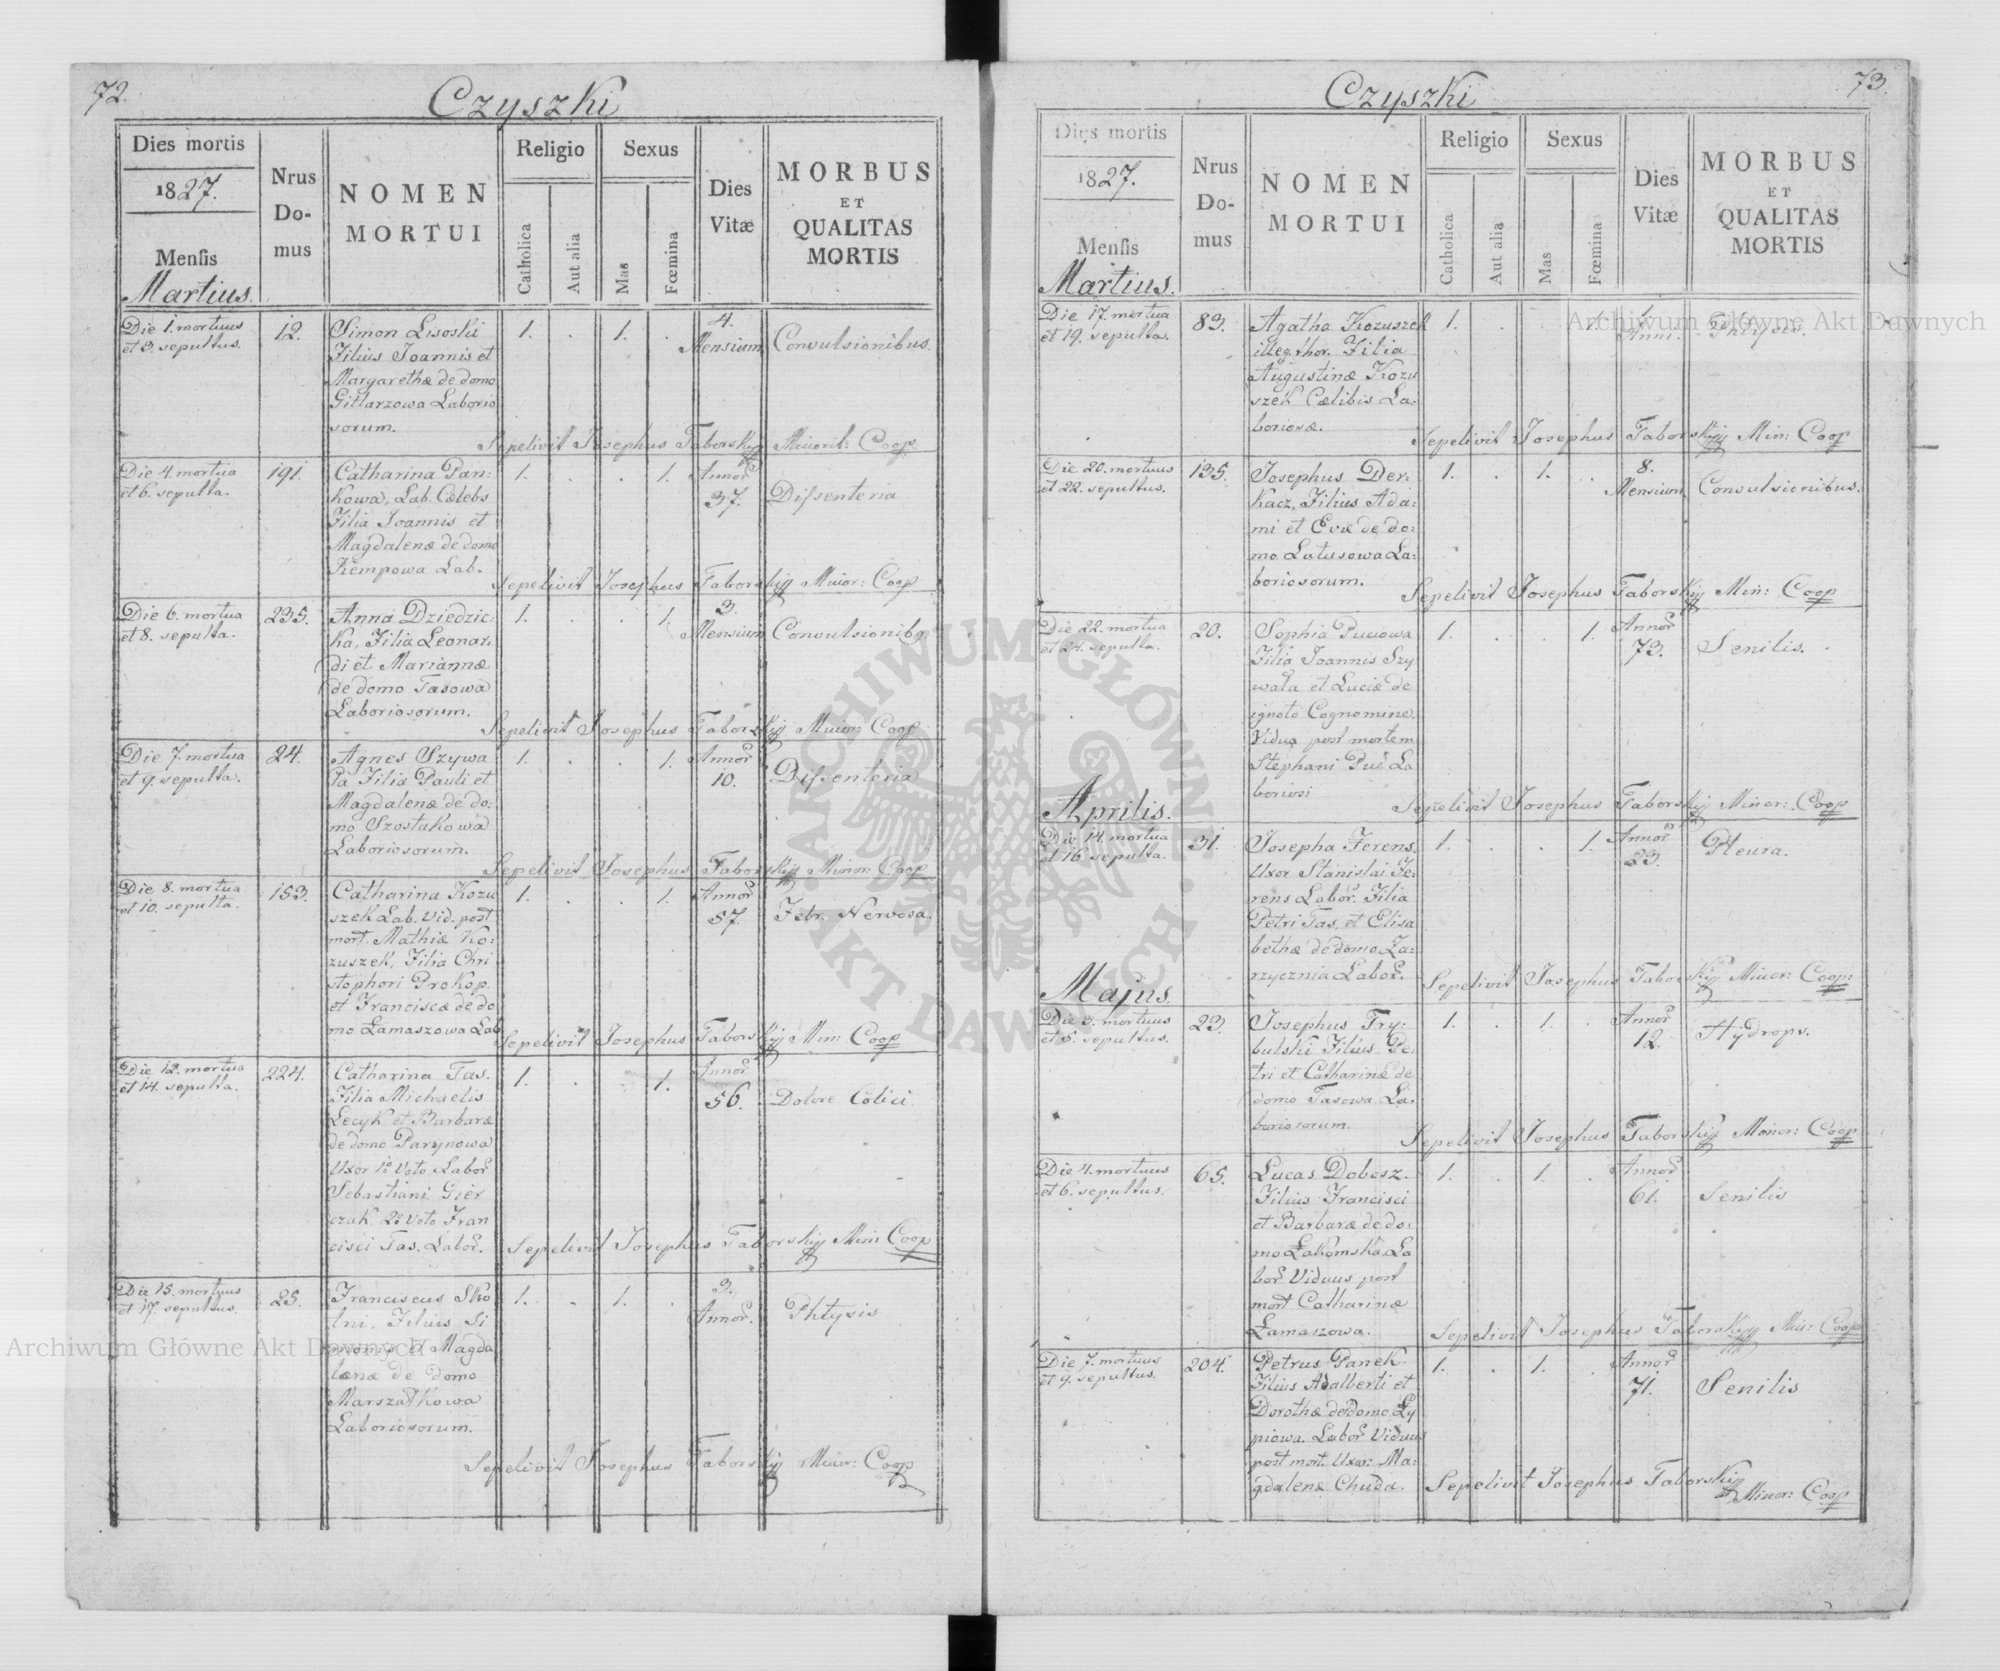 72.
Czyszki
Dies mortis
1827.
Mensis
Martius.
Nrus
Do-
mus
NOMEN
MORTUI
Religio
Catholica
Aut alia
Sexus
Mas
Fœmina
Dies
Vitæ
MORBUS
ET
QUALITAS
MORTIS
Die 1. mortuus
et 3. sepultus.
12.
Simon Lisoski
Filius Joannis et
Margarethæ de domo
Gitlarzowa Laborio
sorum.
1. . 1. .
4.
Mensium
Convulsionibus.
Sepelivit Josephus Taborskij Minorit: Coop
Die 4. mortua
et 6. sepulta.
191.
Catharina Pan-
kowa, Lab. Cælebs
Filia Joannis et
Magdalenæ de domo
Kempowa Lab.
1. . . 1.
Annor
37.
Dissenteria
Sepelivit Josephus Taborskij Minor: Coop
Die 6. mortua
et 8. sepulta.
235.
Anna Dziedzic-
ka, Filia Leonar-
di et Mariannæ
de domo Tasowa
Laboriosorum.
1. . . 1.
3.
Mensium
Convulsionibq
Sepelivit Josephus Taborskij Minor: Coop
Die 7. mortua
et 9. sepulta.
24.
Agnes Szywa
ła Filia Pauli et
Magdalenæ de do:
mo Szostakowa
Laboriosorum.
1. . . 1.
Annor
10.
Dissenteria
Sepelivit Josephus Taborskij Minor: Coop
Die 8. mortua
et 10. sepulta.
153.
Catharina Kozu
szek Lab. Vid. post
mort. Mathiæ Ko:
zuszek, Filia Chri
stophori Prokop.
et Franciscæ de do
mo Łamaszowa Lab
1. . . 1.
Annor
57.
Febr. Nervosa.
Sepelivit Josephus Taborskij Min: Coop
Die 12. mortua
et 14. sepulta.
224.
Catharina Tas.
Filia Michaelis
Lecyk et Barbaræ
de domo Parynowa
Uxor 1º Voto Labor
Sebastiani Gier
czak 2º Voto Fran
cisci Tas. Labor.
1. . . 1.
Annor
56.
Dolore Colici
Sepelivit Josephus Taborskij Min: Coop
Die 15. mortuus
et 17. sepultus.
25.
Franciscus Sko
lni, Filius Si
monis et Magda
lenæ de domo
Marszałkowa
Laboriosorum.
1. . 1. .
3.
Annor.
Phtysis
Sepelivit Josephus Taborskij Minor: Coop
73.
Czyszki
Dies mortis
1827.
Mensis
Martius.
Nrus
Do-
mus
NOMEN
MORTUI
Religio
Catholica
Aut alia
Sexus
Mas
Fœmina
Dies
Vitæ
MORBUS
ET
QUALITAS
MORTIS
Die 17. mortua
et 19. sepulta.
83.
Agatha Kozuszek
illeg. thor. Filia
Augustinæ Kozu
szek Cælibis La:
boriosæ.
1. . . 1.
1.
Anni.
Phtysis.
Sepelivit Josephus Taborskij Min: Coop
Die 20. mortuus
et 22. sepultus.
135.
Josephus Der:
kacz, Filius Ada:
mi et Evæ de do:
mo Latusowa La:
boriosorum.
1. . 1. .
8.
Mensium
Convulsionibus.
Sepelivit Josephus Taborskij Min: Coop
Die 22. mortua
et 24. sepulta.
20.
Sophia Puciowa
Filia Joannis Szy
wała et Luciæ de
ignoto Cognomine.
Vidua post mortem
Stephani Puć La
boriosi
1. . . 1.
Annor
73.
Senilis.
Sepelivit Josephus Taborskij Minor: Coop
Aprilis.
Die 14. mortua
et 16. sepulta.
31.
Josepha Ferens.
Uxor Stanislai Fe
rens Labor. Filia
Petri Tas, et Elisa
bethæ de domo Za:
rzycznia Labor.
1. . . 1.
Annor
23.
Pleura.
Sepelivit Josephus Taborskij Minor: Coop:
Majus.
Die 3. mortuus
et 5. sepultus.
23.
Josephus Try:
bulski Filius Pe:
tri et Catharinæ de
domo Tasowa La:
boriosorum.
1. . 1. .
Annor
12.
Hydrops.
Sepelivit Josephus Taborskij Minor: Coop
Die 4. mortuus
et 6. sepultus.
65.
Lucas Dobosz.
Filius Francisci
et Barbaræ de do:
mo Łakomska La
bor Viduus post
mort Catharinæ
Łamaszowa.
1. . 1. .
Annor
61.
Senilis
Sepelivit Josephus Taborskij Min: Coop
Die 7. mortuus
et 9. sepultus.
204.
Petrus Panek.
Filius Adalberti et
Dorothæ de domo Ły
piowa. Labor Viduus
post mort. Uxor: Ma:
gdalenæ Chuda.
1. . 1. .
Annor
71.
Senilis
Sepelivit Josephus Taborskij
Minor: Coop
Archiwum Główne Akt Dawnych
Archiwum Główne Akt Dawnych
ARCHIWUM GŁÓWNE · AKT DAWNYCH ·